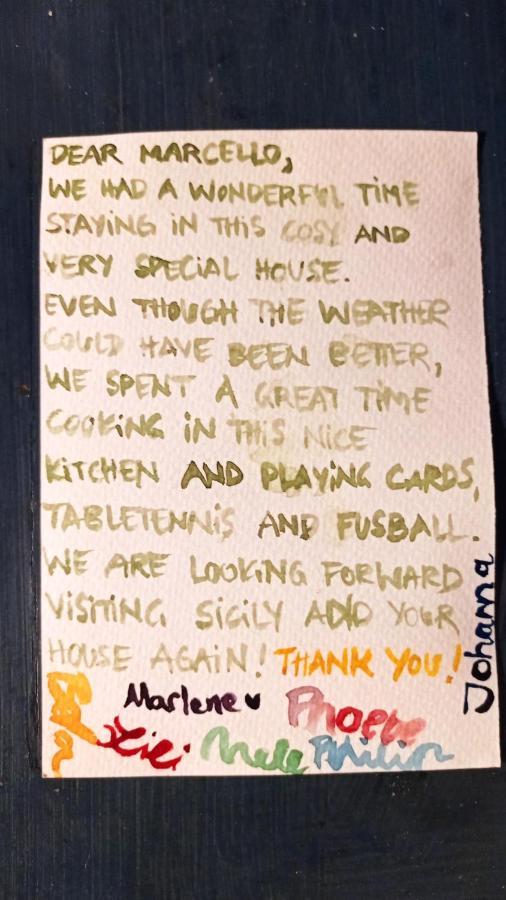 DEAR MARCELLO,
WE HAD A WONDERFUL TIME
STAYING IN THIS COSY AND
VERY SPECIAL HOUSE.
EVEN THOUGH THE WEATHER
COULD HAVE BEEN BETTER,
WE SPENT A GREAT TIME
COOKING IN THIS NICE
KITCHEN AND PLAYING CARDS,
TABLETENNIS AND FUSBALL.
WE ARE LOOKING FORWARD
VISITING SICILY AND YOUR
HOUSE AGAIN! THANK YOU!
Johanna
Marlene ♥ Phoebe
Nele Philipp